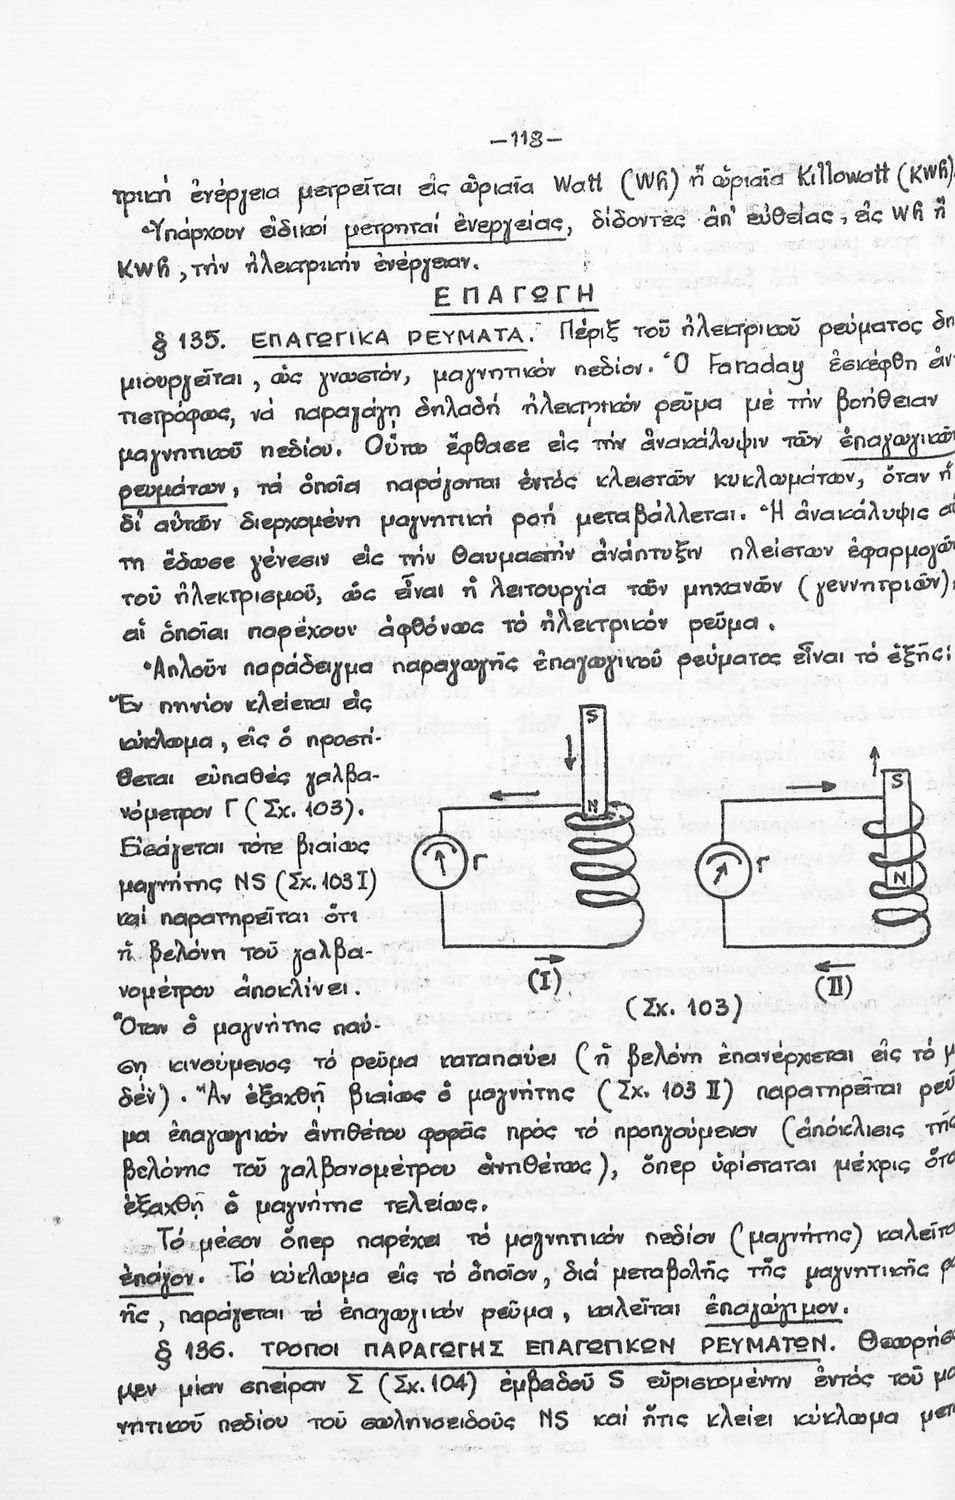 –118–
τρική ἐνέργεια μετρεῖται εἰς ὡριαῖα Watt (Wh) ἤ ὡριαῖα Killowatt (KWh).
Ὑπάρχουν εἰδικοί μετρηταί ἐνεργείας, δίδοντες ἀπ' εὐθείας, εἰς Wh ἤ
KWh, τήν ἠλεκτρικήν ἐνέργειαν.
ΕΠΑΓΩΓΗ
§ 135. ΕΠΑΓΩΓΙΚΑ ΡΕΥΜΑΤΑ. Πέριξ τοῦ ἠλεκτρικοῦ ρεύματος δη
μιουργεῖται, ὡς γνωστόν, μαγνητικόν πεδίον. Ὁ Faraday ἐσκέφθη ἀν
τιστρόφως, νά παραγάγῃ δηλαδή ἠλεκτρικόν ρεῦμα μέ τήν βοήθειαν
μαγνητικοῦ πεδίου. Οὕτω ἔφθασε εἰς τήν ἀνακάλυψιν τῶν ἐπαγωγικῶν
ρευμάτων, τά ὁποῖα παράγονται ἐντός κλειστῶν κυκλωμάτων, ὅταν ἡ
δι' αὐτῶν διερχομένη μαγνητική ροή μεταβάλλεται. Ἡ ἀνακάλυψις αὐ
τη ἔδωσε γένεσιν εἰς τήν θαυμαστήν ἀνάπτυξιν πλείστων ἐφαρμογῶν
τοῦ ἠλεκτρισμοῦ, ὡς εἶναι ἡ λειτουργία τῶν μηχανῶν (γεννητριῶν),
αἱ ὁποῖαι παρέχουν ἀφθόνως τό ἠλεκτρικόν ρεῦμα.
Ἁπλοῦν παράδειγμα παραγωγῆς ἐπαγωγικοῦ ρεύματος εἶναι τό ἑξῆς:
Ἕν πηνίον κλείεται εἰς
κύκλωμα, εἰς ὅ προστί-
θεται εὐπαθές γαλβα-
νόμετρον Γ (Σχ. 103).
Εἰσάγεται τότε βιαίως
μαγνήτης NS (Σχ. 103 I)
καί παρατηρεῖται ὅτι
ἡ βελόνη τοῦ γαλβα-
νομέτρου ἀποκλίνει.
Ὅταν ὁ μαγνήτης παύ-
S
N
Γ
(I)
S
N
Γ
(II)
(Σχ. 103)
σῃ κινούμενος τό ρεῦμα καταπαύει (ἡ βελόνη ἐπανέρχεται εἰς τό μ
δέν). Ἄν ἐξαχθῇ βιαίως ὁ μαγνήτης (Σχ. 103 II) παρατηρεῖται ρεῦ
μα ἐπαγωγικόν ἀντιθέτου φορᾶς πρός τό προηγούμενον (ἀπόκλισις τῆς
βελόνης τοῦ γαλβανομέτρου ἀντιθέτως), ὅπερ ὑφίσταται μέχρις ὅτο
ἐξαχθῇ ὁ μαγνήτης τελείως.
Τό μέσον ὅπερ παρέχει τό μαγνητικόν πεδίον (μαγνήτης) καλεῖτα
ἐπάγον. Τό κύκλωμα εἰς τό ὁποῖον, διά μεταβολῆς τῆς μαγνητικῆς ρο
ῆς, παράγεται τό ἐπαγωγικόν ρεῦμα, καλεῖται ἐπαγώγιμον.
§ 136. ΤΡΟΠΟΙ ΠΑΡΑΓΩΓΗΣ ΕΠΑΓΩΓΙΚΩΝ ΡΕΥΜΑΤΩΝ. Θεωρήσω
μεν μίαν σπεῖραν Σ (Σχ. 104) ἐμβαδοῦ S εὑρισκομένην ἐντός τοῦ μα
γνητικοῦ πεδίου τοῦ σωληνοειδοῦς NS καί ἥτις κλείει κύκλωμα μετ